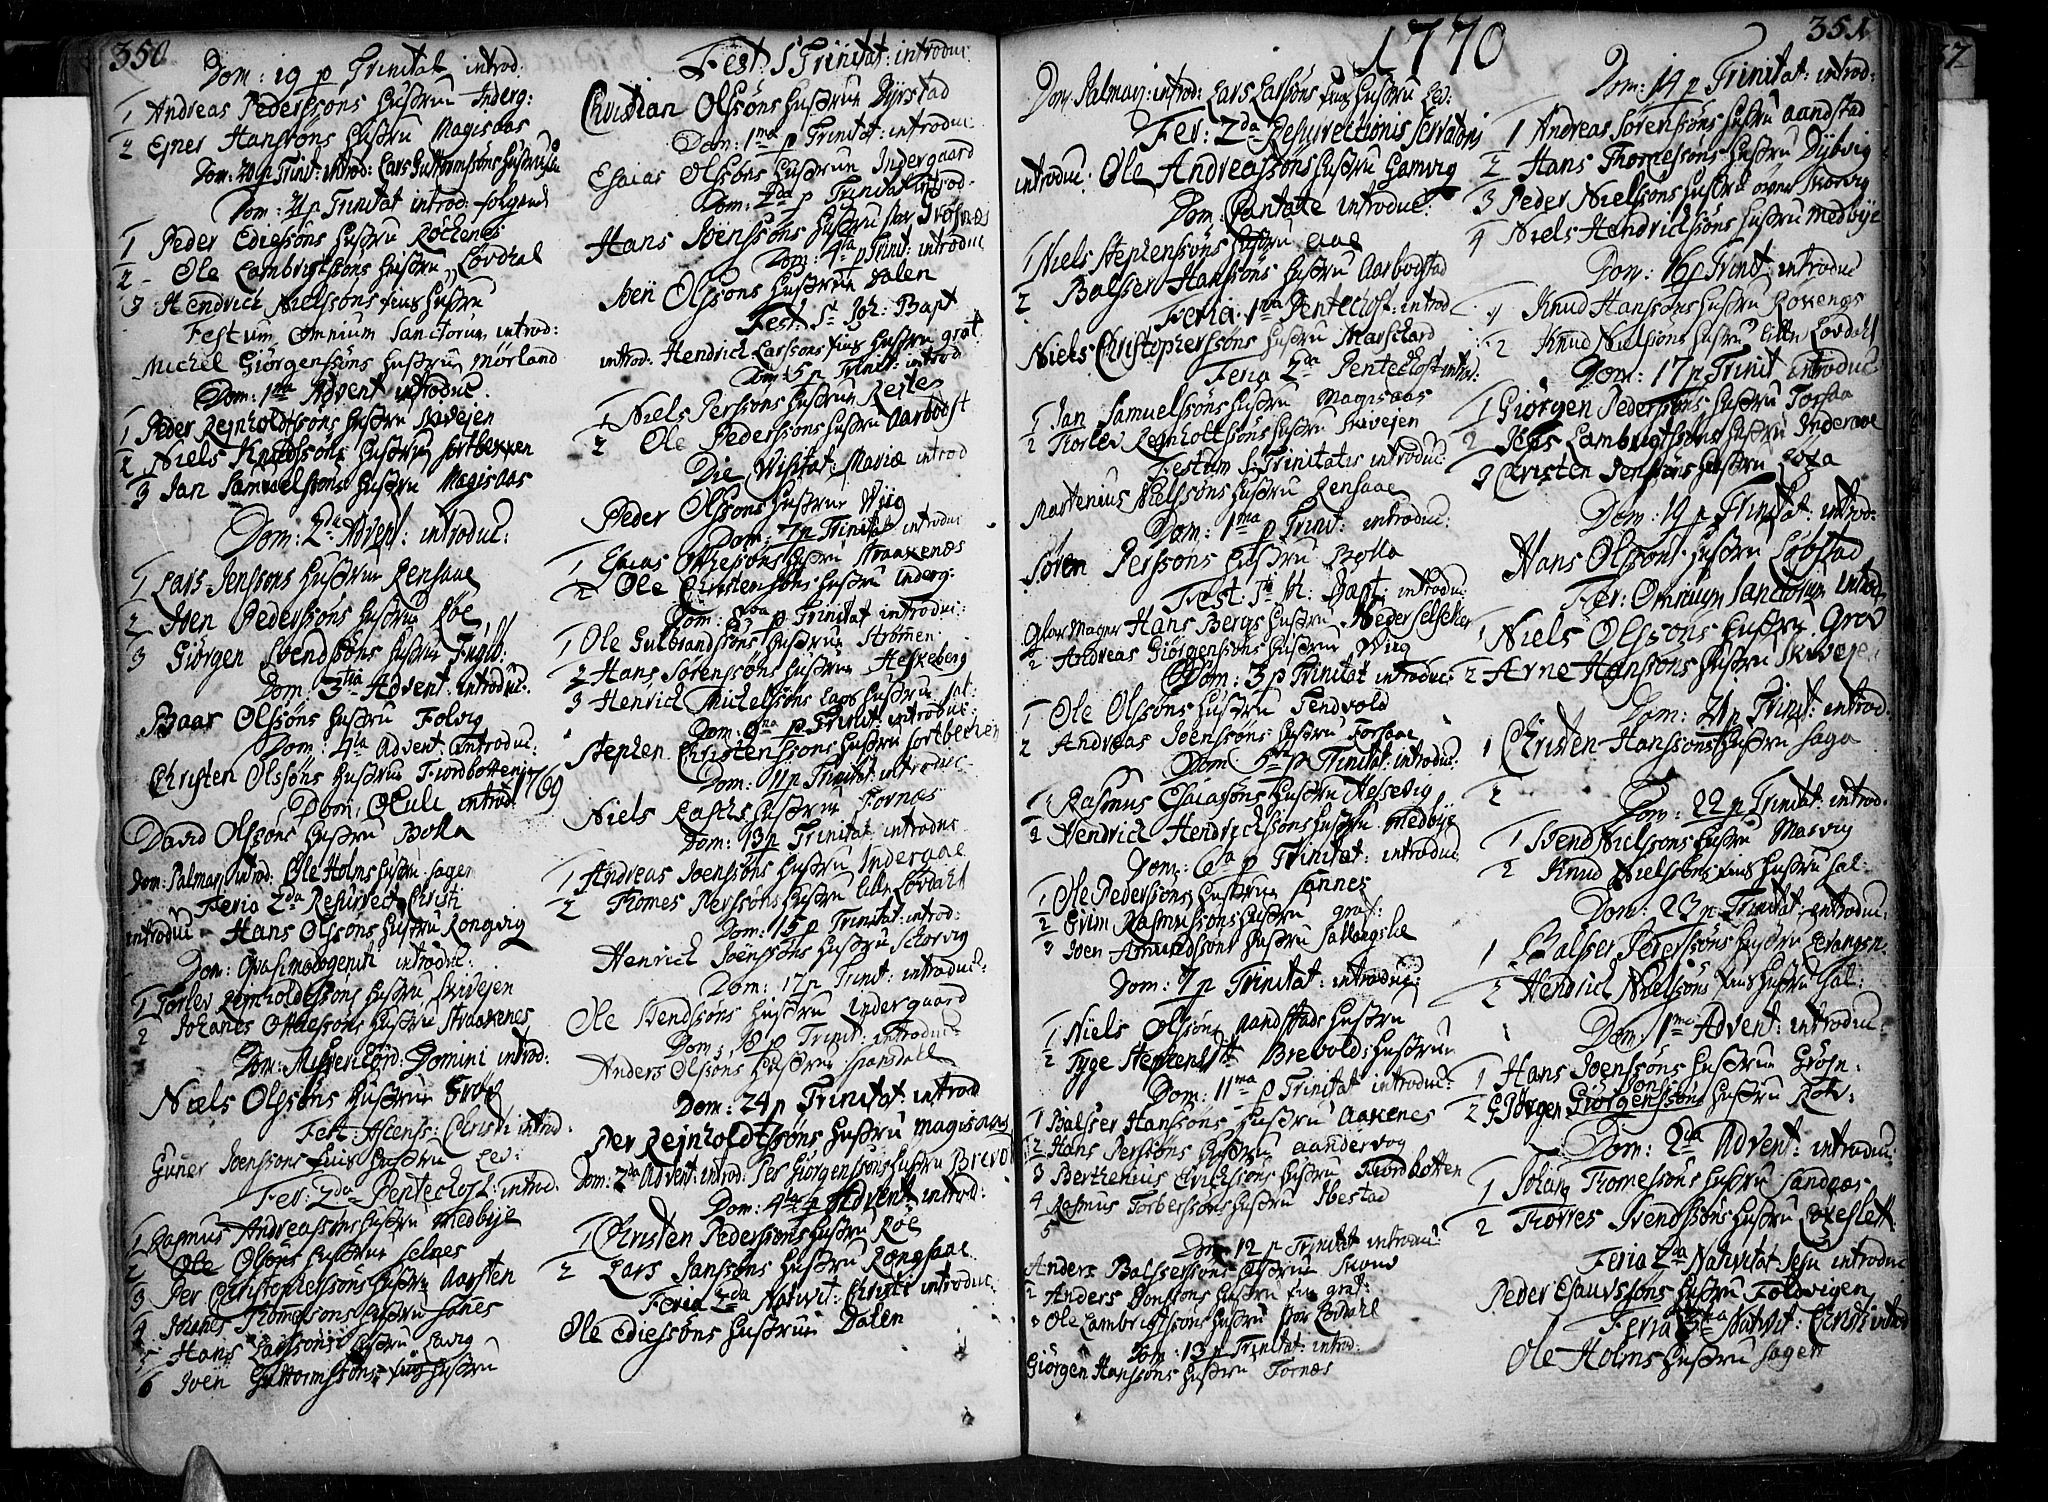 350
Dom: 19 p Trinitat introd:
1 Andreas Pederssøns Hustrue Inderg:
2 Ejner Hanssøns Hustru Magisaas
Dom: 20 p Trinit: introd: Lars Guttormssøns Hustru
Dom: 21 p Trinitat introd: følgende
1 Peder Ediessøns Hustru Rochenes
2 Ole Lambrigtssøns Hustru Løvdal
3 Hendrich Nielssøns Hustru
Festum Omnium Sanctorum introd:
Michel Giørgenssøns Hustrue Mørland
Dom: 1ma Advent introduc:
1 Peder Rejnholdtssøns Hustru Skivejen
2 Niels Knudssøns Hustrue Sortbekken
3 Jan Samuelssøns Hustru Magisaas
Dom: 2da Advent: introduc:
1 Lars Jenssøns Hustrue Rensaae
2 Iven Pederssøns Hustrue Røe
3 Giørgen Svendssøns Hustrue Fuglb:
Dom: 3tia Advent: introduc:
Baar Olssøns Hustru Folvig
Dom: 4ta Advent: introduc:
Christen Olssøns Hustrue Fiordbotten
1769
Dom: Oculi introd:
David Olssøns Hustru Bolla
Dom: Palmar: introd: Ole Holms Hustru Sagen
Feria 2da Resurrect Christi
introduc Hans Olssøns Hustru Rongvig
Dom: Qvasimodogeniti introduc:
1 Torlev Rejnholdtssøns Hustru Skivejen
2 Johanes Ottessøns Hustru Straaxenes
Dom: Misericord: Domini introd:
Niels Olssøns Hustrue Grov
Fest: Ascens: Christi introd:
Guner Joenssøns Hustru Lev:
Fer: 2da Pentechost: introd:
1 Rasmus Andreassøns Hustru Medbye
2 Ole Olssøns Hustrue Selnes
3 Per Christophersøns Hustru Aarsten
4 Johanes Thomessøns Hustru Sanes
5 Hans Larssøns Hustru Lavig
6 Iven Guttormssøns Hustru
Fest: S Trinitat: introduc
Christian Olssøns Hustrue Dyrstad
Dom: 1ma p Trinitat: introduc
Esaias Olssøns Hustrue Indergaard
Dom: 2da p Trinitat introd:
Hans Joenssøns Hustru
Dom: 4ta p Trinit: introduc
Joen Olssøns Hustrue Dalen
Fest: St Joh: Bapt
introd: Hendrich Larssøns Hustru grat
Dom: 5 p Trinit: introd
1 Niels Perssøns Hustrue
2 Ole Pederssøns Hustru Aarbodst
Die Visitat: Mariæ introd
Peder Olssøns Hustrue Wiig
Dom: 7 p Trinitat introduc
1 Esaias Ottessøns Hustru Straaxenæs
2 Ole Christenssøns Hustru Inderg:
Dom: 8va p Trinitat introduc:
1 Ole Gulbrandssøns Hustrue Strømen
2 Hans Sørenssøns Hustrue Heskeberg
3 Henrich Michelssøns Hustrue
Dom: 9na p Trinit: introduc:
Stephen Christenssøns Hustru Sortbekken
Dom: 11 p Trinitat: introduc
Niels Hustrue Fornæs
Dom: 13 p Trinitat introduc
1 Andreas Joenssøns Hustru Indergaae
2 Thomes Perssøns Hustru Lille Løvdahl
Dom: 15 p Trinitat: introd:
Henrich Joenssøns Hustru Schorvig
Dom: 17 p Trinit: introduc:
Ole Svendssøns Hustrue Indergaard
Dom: 18 p Trinitat: introduc:
Anders Olssøns Hustrue Spansdall
Dom: 24 p Trinitat introd
Per Rejnholdtssøns Hustru Magisaas
Dom: 2da Advent: introd: Per Giørgenssøns Hustru Brevol
Dom: 4ta Advent introd:
1 Christen Pederssøns Hustru Røe
2 Lars Janssøns Hustru Rongsaae
Feria 2da Nativit: Christi introduc:
Ole Ediessøns Hustrue Dalen
1770
351
Dom: Palmar: introd: Lars Larssøns Hustru Lev:
Fer: 2da Resurrectionis Servatoris
introduc: Ole Andreassøns Hustru Gamvig
Dom: Cantate introduc:
1 Niels Stephenssøns Hustru Aae
2 Balsser Hanssøns Hustru Aarbodstad
Feria 1ma Pentechost: introd
Niels Christopherssøns Hustru Marschard
Feria 2da Pentechost introd:
1 Jan Samuelssøns Hustru Magisaas
2 Torlev Rejnholtssøns Hustru Skivejen
Festum S Trinitatis introduc:
Martenius Nielssøns Hustru Rensaae
Dom: 1ma p Trinit: introduc:
Søren Perssøns Hustru Bolla
Fest: St H: Bapt: introduc
Glas Mager Hans Bergs Hustru Neder Selseker
2 Andreas Giørgenssøns Hustrue Wiig
Dom: 3 p Trinitat introduc:
1 Ole Olssøns Hustru Tendvold
2 Andreas Joenssøns Hustru Forsaae
Dom: 5ta p Trinitat: introduc:
1 Rasmus Esaiassøns Hustru Hessevig
2 Hendrich Hendrichssøns Hustru Medbye
Dom: 6ta p Trinitat: introduc
1 Ole Pederssøns Hustrue Sannes
2 Evim Rasmussøns Hustru grat:
3 Joen Amundssøns Hustru Sallangslie
Dom: 7 p Trinitat: introduc:
1 Niels Olssøn Aandstads Hustru
2 Tyge Stephens Brevolds Hustrue
Dom: 11ma p Trinitat introduc:
1 Balsser Hanssøns Hustru Aaxenes
2 Hans Perssøns Hustru Aandervog
3 Berthenius Erichssøns Hustru Fiordbotten
4 Rasmus Torberssøns Hustru Ibestad
5
Dom: 12 p Trinitat introduc:
Anders Balsserssøns Hustru
2 Anders Hustru grat:
3 Ole Lambrigtssøns Hustru Stor Løvdahl
Dom: 13 p Trinitat: introd:
Giørgen Hanssøns Hustru Fornæs
Dom: 14 p Trinitat: introd:
1 Andreas Sørenssøns Hustru Aandstad
2 Hans Thomessøns Hustru Dybvig
3 Peder Nielssøns Hustru over Skorvig
4 Niels Hendrichssøns Hustru Medbye
Dom: 16 p Trinit: introduc
1 Knud Hanssøns Hustru Roxengs
2 Knud Nielssøns Hustru Lille Løvdahl
Dom: 17 p Trinit introduc
1 Giørgen Pederssøns Hustru Forsaa
2 Jens Lambrigtssøns Hustru Inderaae
3 Christen Jenssøns Hustru
Dom: 19 p Trinitat: introd:
Hans Olssøns Hustru Løbstad
Fer: Omnium Sanctorum introd
1 Niels Olssøns Hustru Grov
2 Arne Hanssøns Hustru Skiveje
Dom: 21 p Trinit: introd:
1 Christen Hanssøns Hustru Saga
2
Dom: 22 p Trinitat: introd:
1 Svend Nielssøns Hustru Masvig
2 Knud Nielssøns Hustru Sal:
Dom: 23 p Trinitat: introduc:
1 Balser Peterssøns Hustru
2 Hendrich Nielssøns Hustru Sal:
Dom: 1ma Advent: introduc:
1 Hans Joenssøns Hustrue
Jonssøns
2 Giørgen Giørgenssøns Hustru
Dom: 2da Advent: introduc:
1 Johan Thomessøns Hustru Sandnæs
2 Thorres Ivendssøns Hustru Loxeslett
Feria 2da Nativitat Jesu introduc
Peder Esauvssøns Hustru Foldvigen
Feria 3tia Nativit: Christi introd
Ole Holms Hustru Sagen